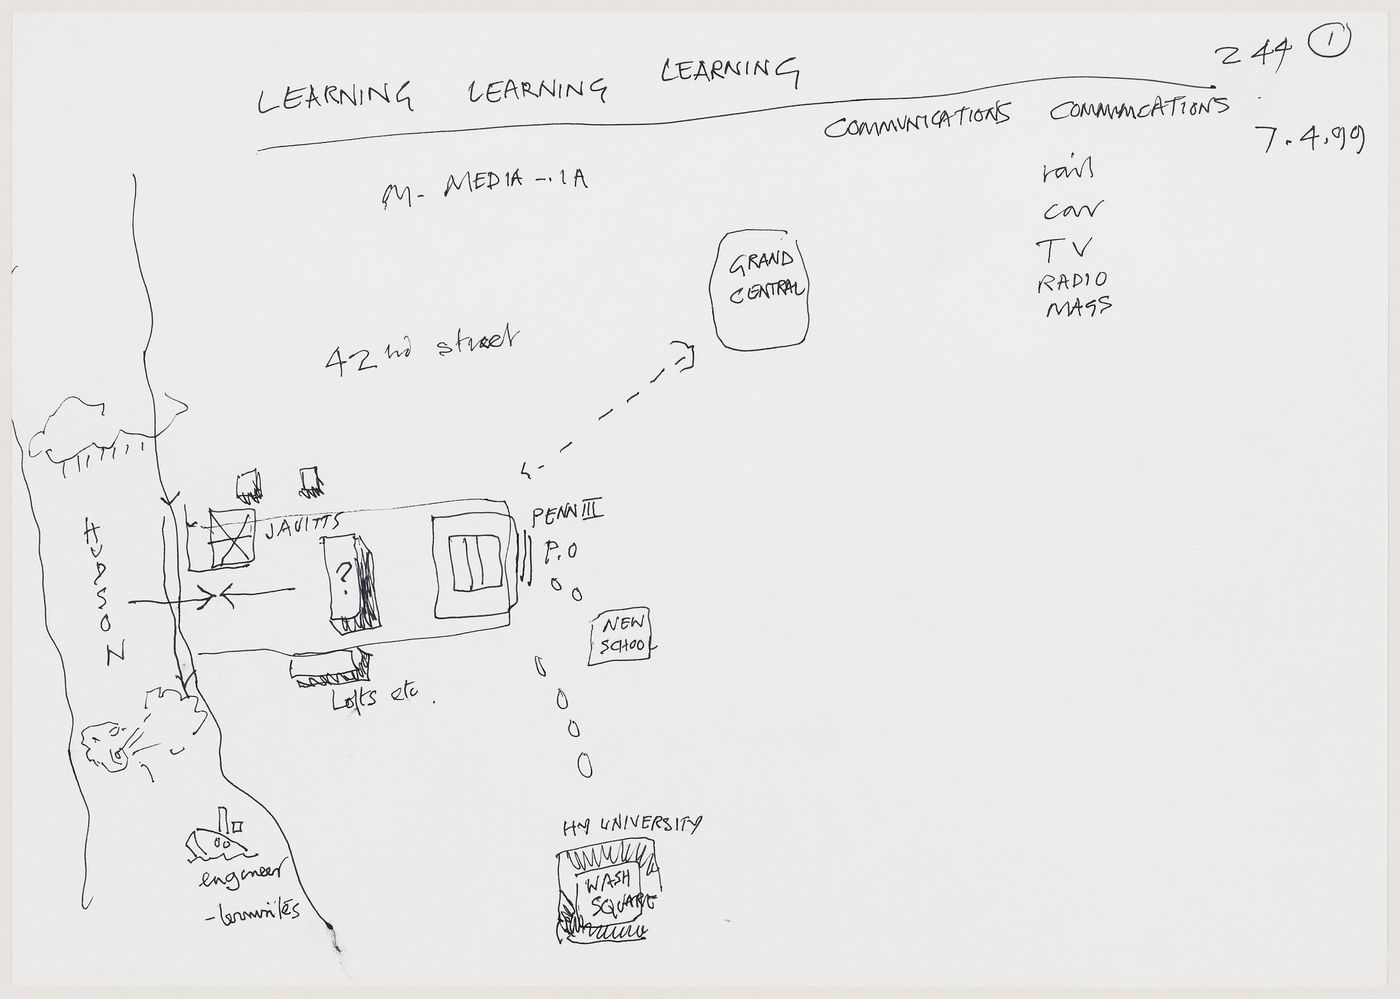 244 1
LEARNING LEARNING LEARNING
COMMUNICATIONS COMMUNCATIONS
7.4.99
rail
car
TV
RADIO
MAGS
M- MEDIA -..IA
GRAND
CENTRAL
42nd street
HUDSON
JAVITTS
PENN III
P.O
?
NEW
SCHOOL
Lofts etc.
NY UNIVERSITY
WASH
SQUARE
engineer